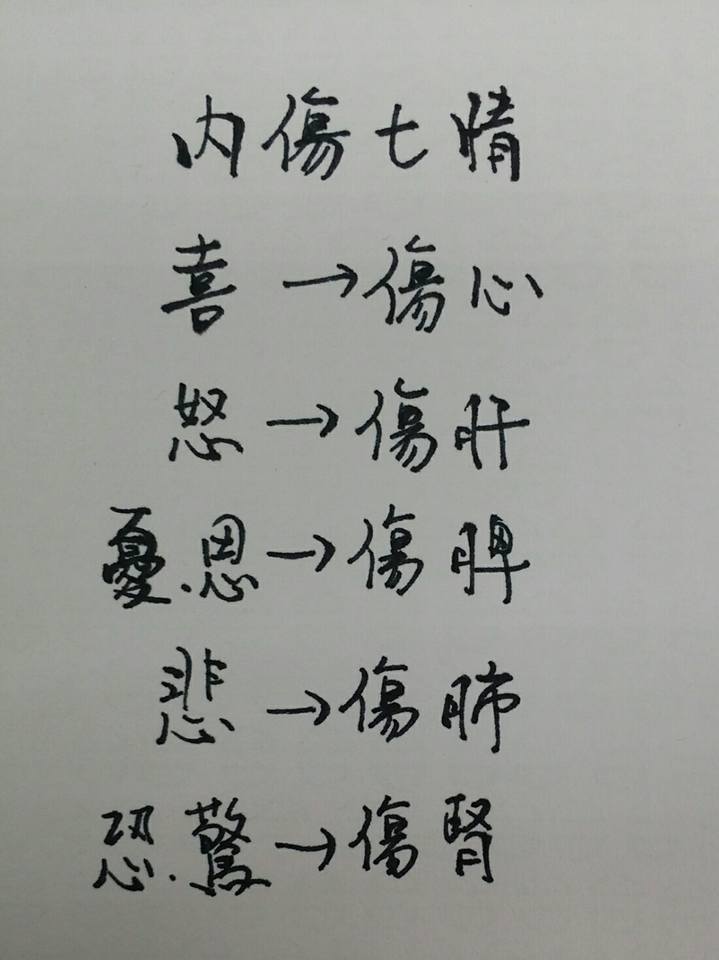 內傷七情
喜→傷心
怒→傷肝
憂.恩→傷脾
悲→傷肺
恐.驚→傷腎